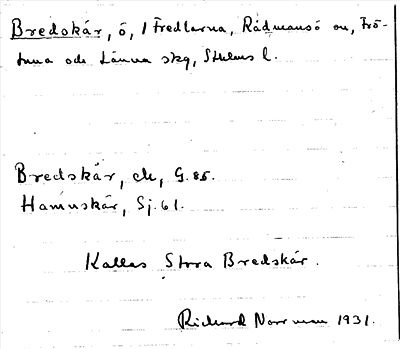 Bredskär, ö, i Fredlarna, Rådmansö sn, Frö-
tuna och Länna skg, Sthlms l.
Bredskär, ek, G. 85.
Hamnskär, Sj. 61.
Kallas Stora Bredskär.
Richard Norrman 1931.